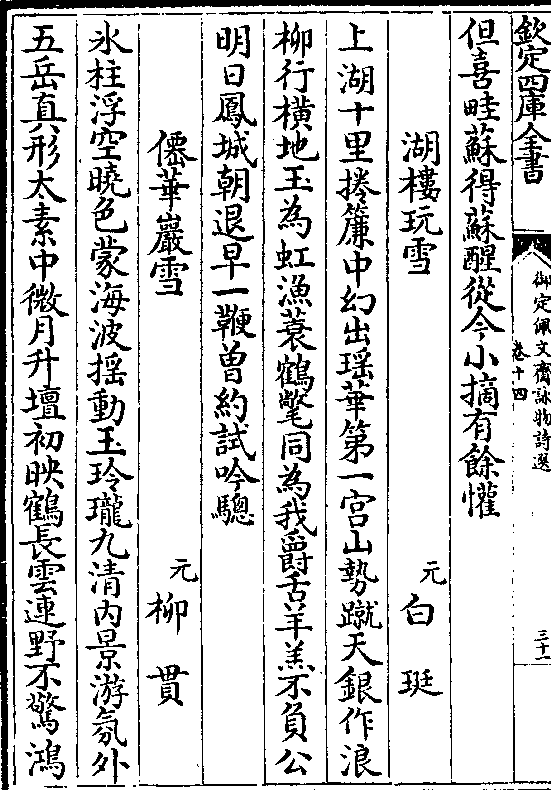 欽定四庫全書
御定佩文齋詠物詩選
卷十四
三十一
但喜畦蘇得蘇醒從今小摘有餘懽
湖樓玩雪
元白珽
上湖十里捲簾中幻出瑶華第一宫山勢蹴天銀作浪
柳行橫地玉為虹漁蓑鶴氅同為我爵舌羊羔不負公
明日鳳城朝退早一鞭曾約試吟驄
僊華巖雪
元柳貫
氷柱浮空曉色蒙海波揺動玉玲瓏九清内景游氛外
五岳真形太素中微月升壇初映鶴長雲連野不驚鴻